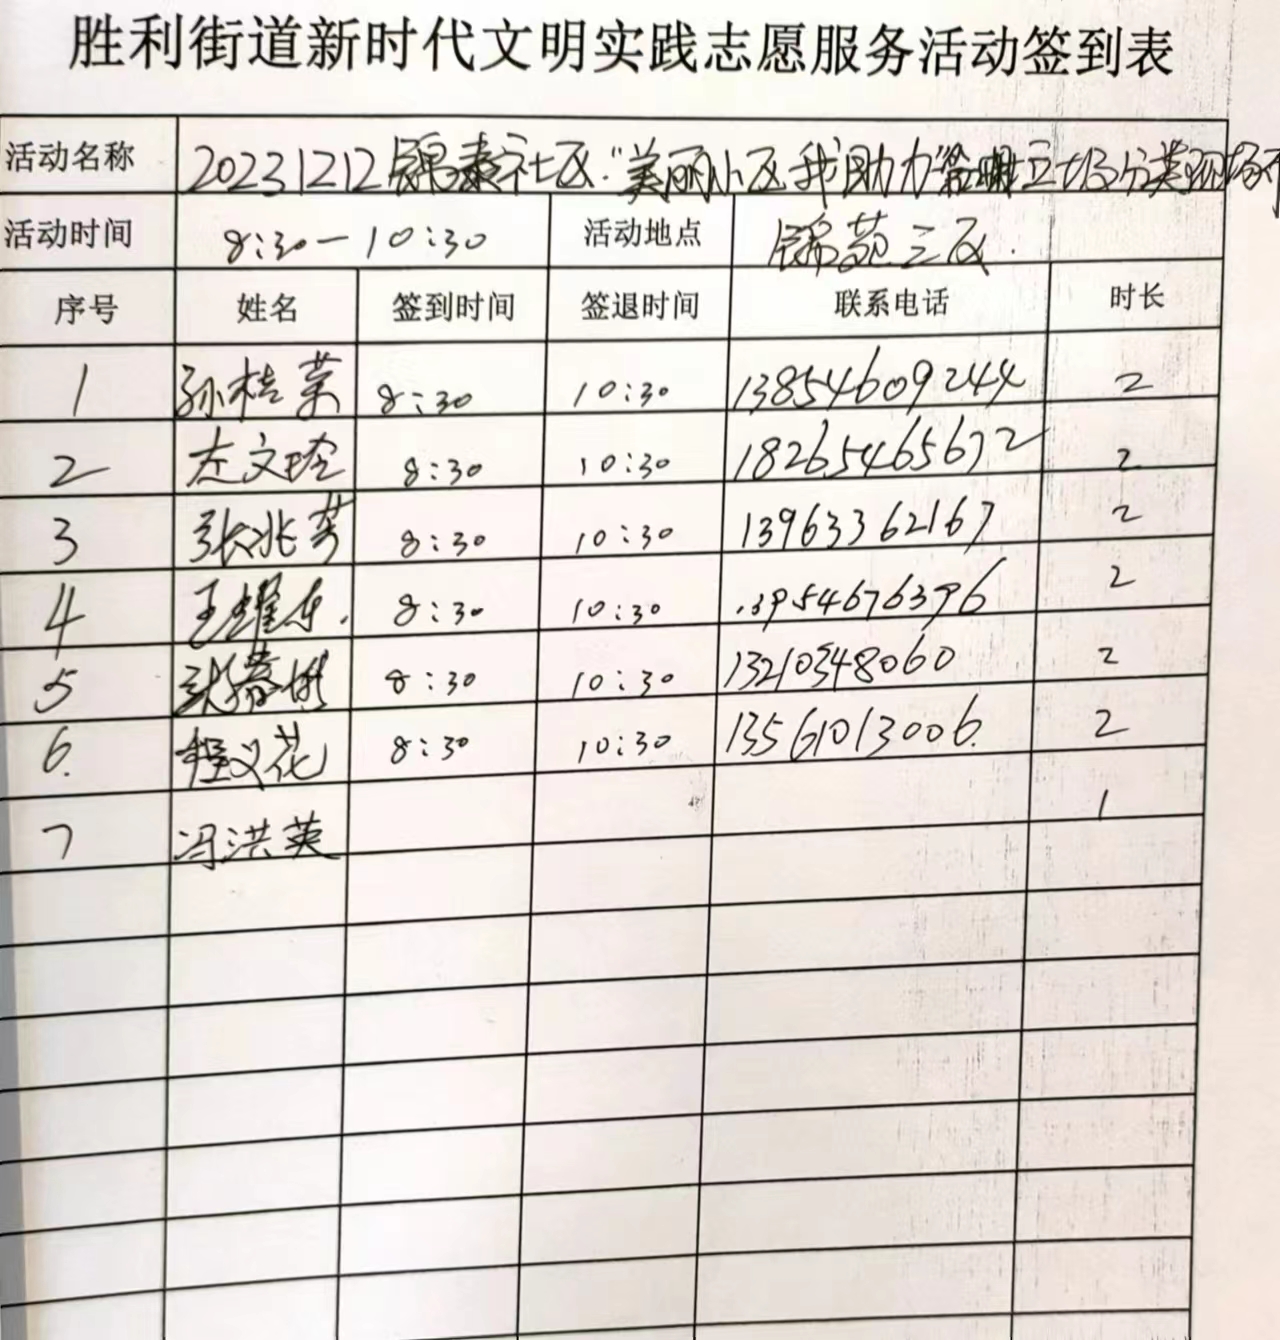 胜利街道新时代文明实践志愿服务活动签到表
活动名称 20231212锦泰社区"美丽小区我助力"分类
活动时间 8:30-10:30 活动地点 锦苑三区.
序号 姓名 签到时间 签退时间 联系电话 时长
1 孙桂荣 8:30 10:30 13854609244 2
2 左文玲 8:30 10:30 18265465672 2
3 张兆芳 8:30 10:30 13963362167 2
4 王耀东. 8:30 10:30 13954676396 2
5 8:30 10:30 13210348060 2
6. 程义花 8:30 10:30 13561013006. 2
7 冯洪英 1